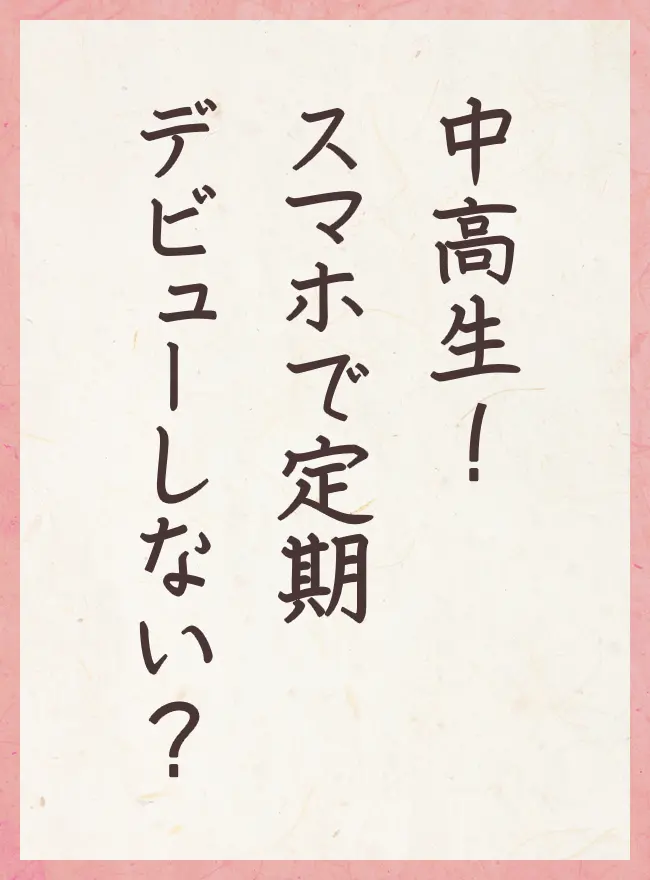 中高生！
スマホで定期
デビューしない？